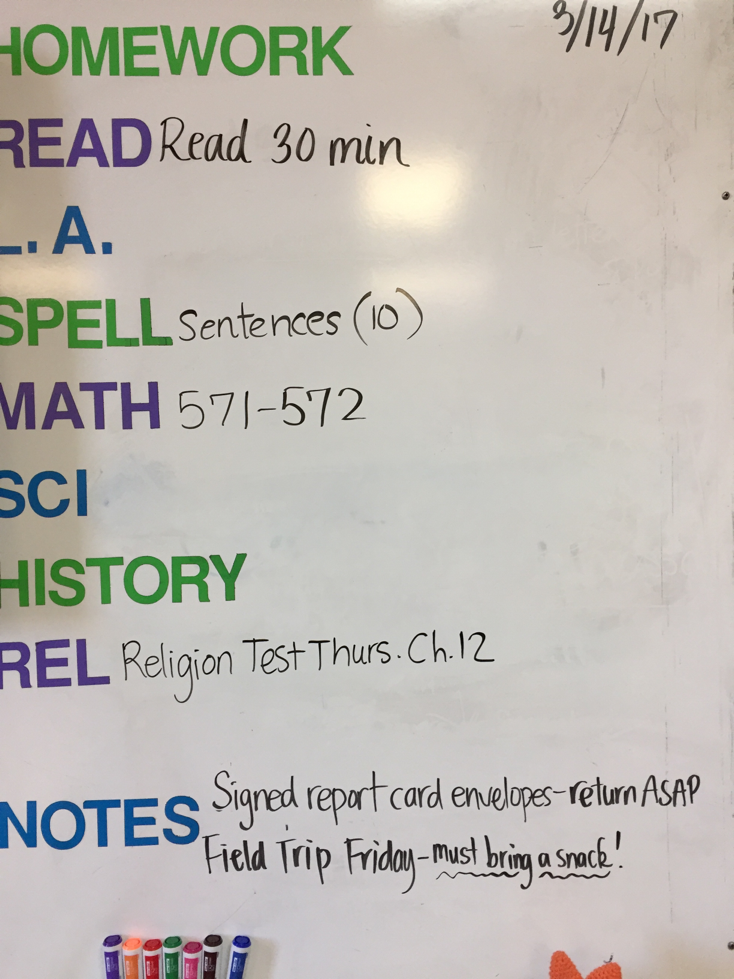 HOMEWORK 3/14/17
READ Read 30 min
L. A.
SPELL Sentences (10)
MATH 571-572
SCI
HISTORY
REL Religion Test Thurs. Ch. 12
NOTES Signed report card envelopes-return ASAP
Field Trip Friday-must bring a snack!